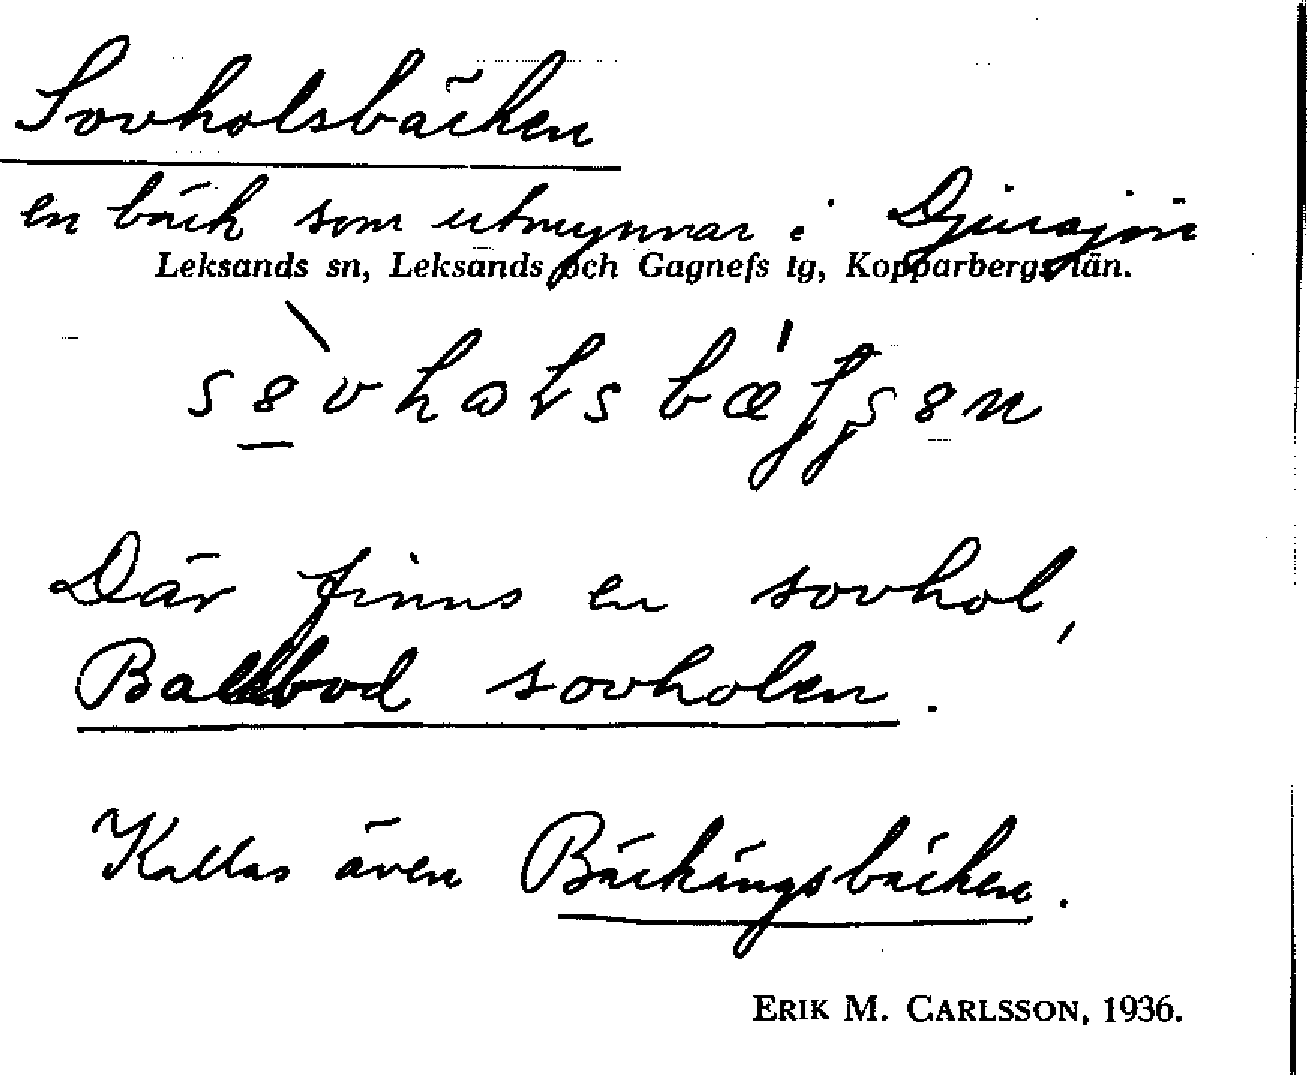 Sovholsbäcken
en bäck som utmynnar i Djursjön
Leksands sn, Leksands och Gagnefs tg, Kopparbergs län.
Där finns en sovhol,
sovholen.
Kallas även Bäckängsbäcken.
ERIK M. CARLSSON, 1936.